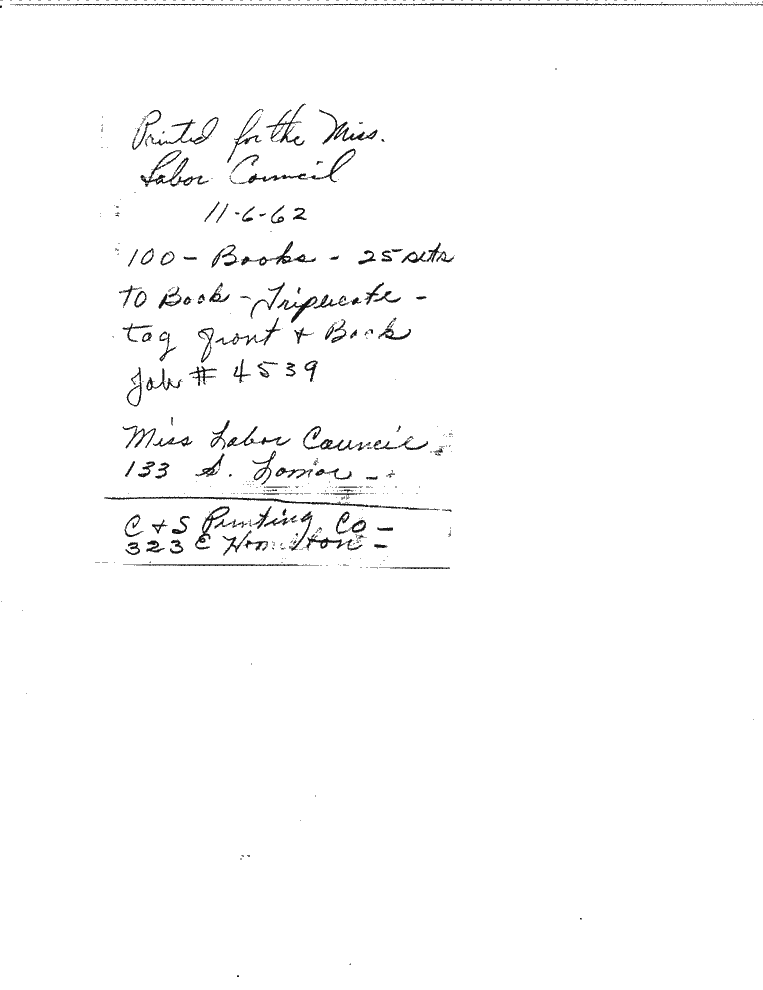 Printed for the Miss.
Labor Council
11-6-62
100 - Books - 25 sets
TO Book - Triplicate -
tag front + Back
Job # 4539
Miss Labor Council
133 S. Lamar -
C + S Printing Co -
323 E Hamilton -